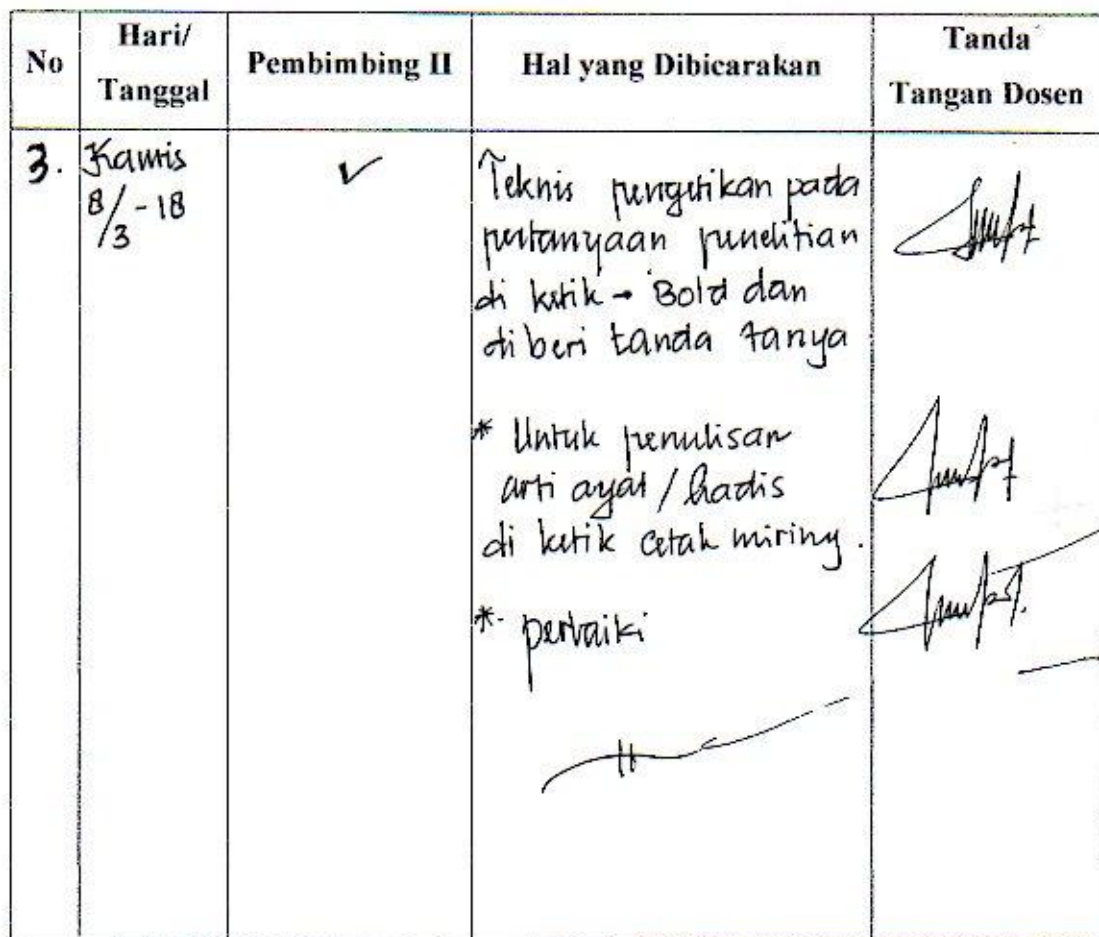 No
Hari/
Tanggal
Pembimbing II
Hal yang Dibicarakan
Tanda
Tangan Dosen
3.
Kamis
8/3 - 18
✓
Teknis pengetikan pada
pertanyaan penelitian
di ketik → Bold dan
di beri tanda tanya
* Untuk penulisan
arti ayat / hadis
di ketik cetak miring.
*- perbaiki